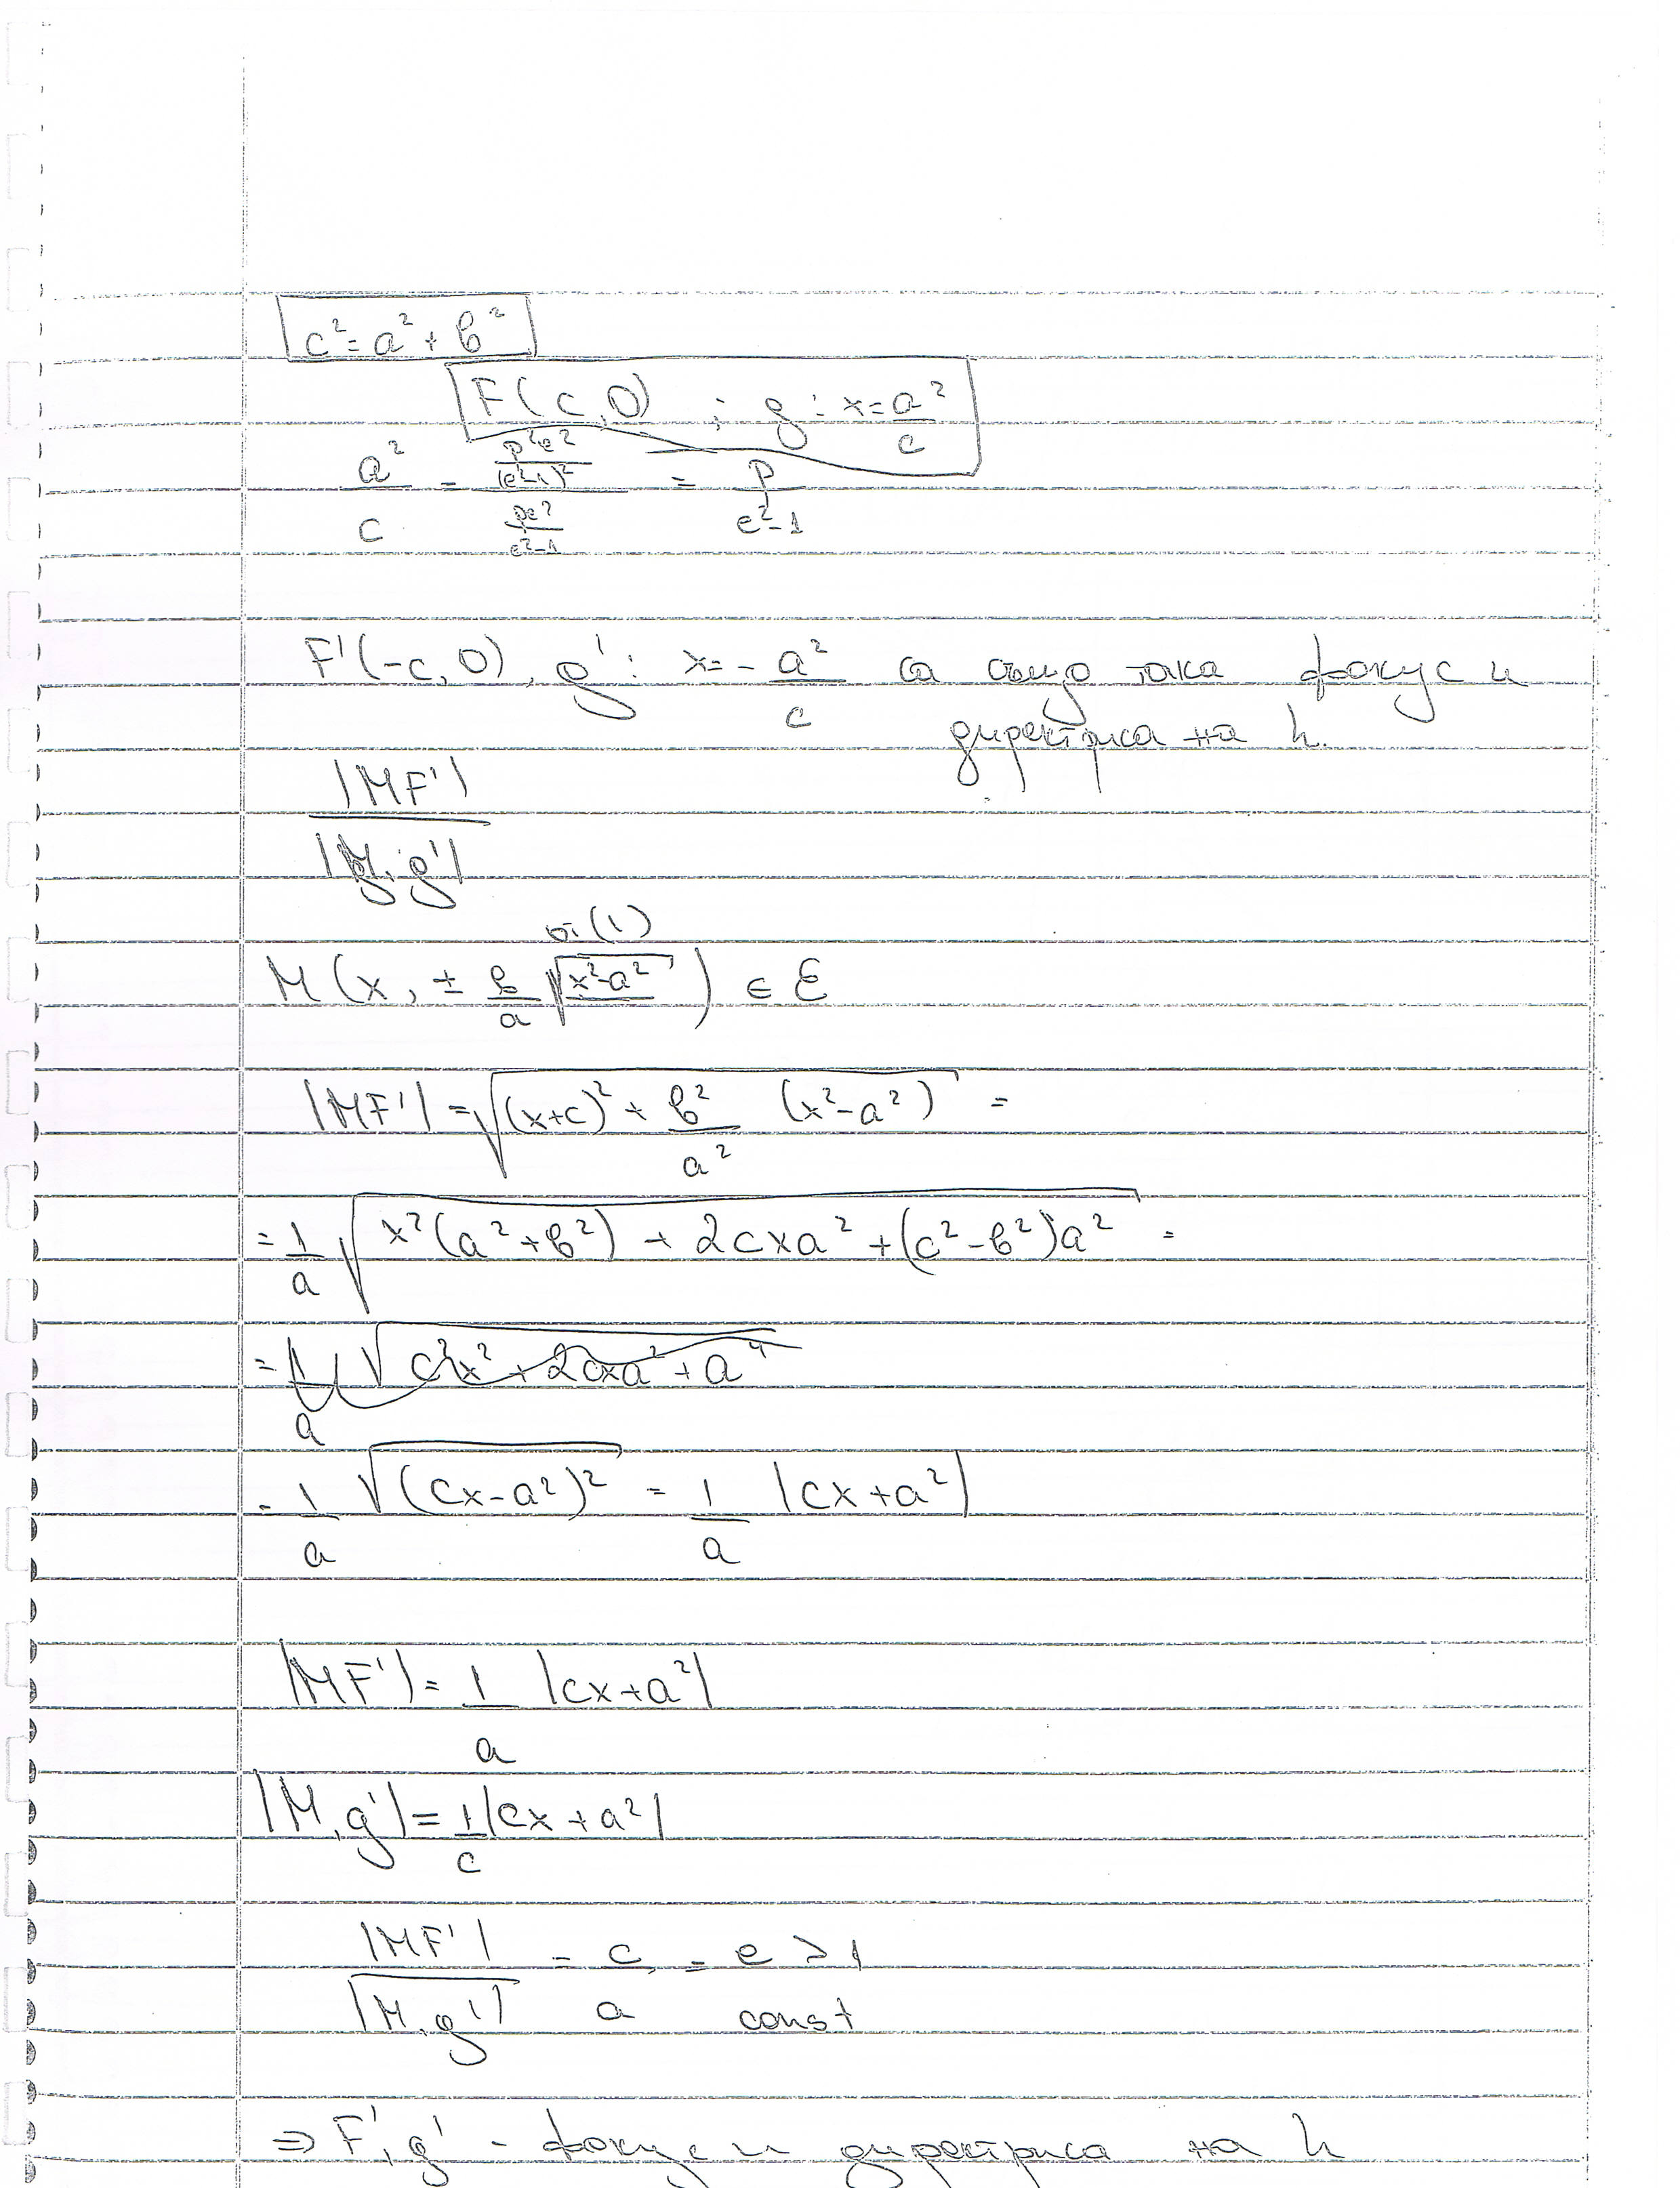 c² = a² + b²
F(c, 0) ; g: x = a²/c
a²/c = (p²e²/(e²-1)²)/(pe²/(e²-1)) = p/(e²-1)
F'(-c, 0), g': x = -a²/c са също така фокус и
директриса на h.
|MF'|/|M, g'|
от (1)
M(x, ± b/a √(x²-a²)) ∈ ℰ
|MF'| = √((x+c)² + b²/a² (x²-a²)) =
= 1/a √(x²(a²+b²) + 2cxa² + (c²-b²)a²) =
= 1/a √(c²x² + 2cxa² + a⁴)
= 1/a √((cx-a²)²) = 1/a |cx+a²|
|MF'| = 1/a |cx+a²|
|M, g'| = 1/c |cx+a²|
|MF'|/|M, g'| = c/a = e > 1
const
⇒ F', g' - фокус и директриса на h